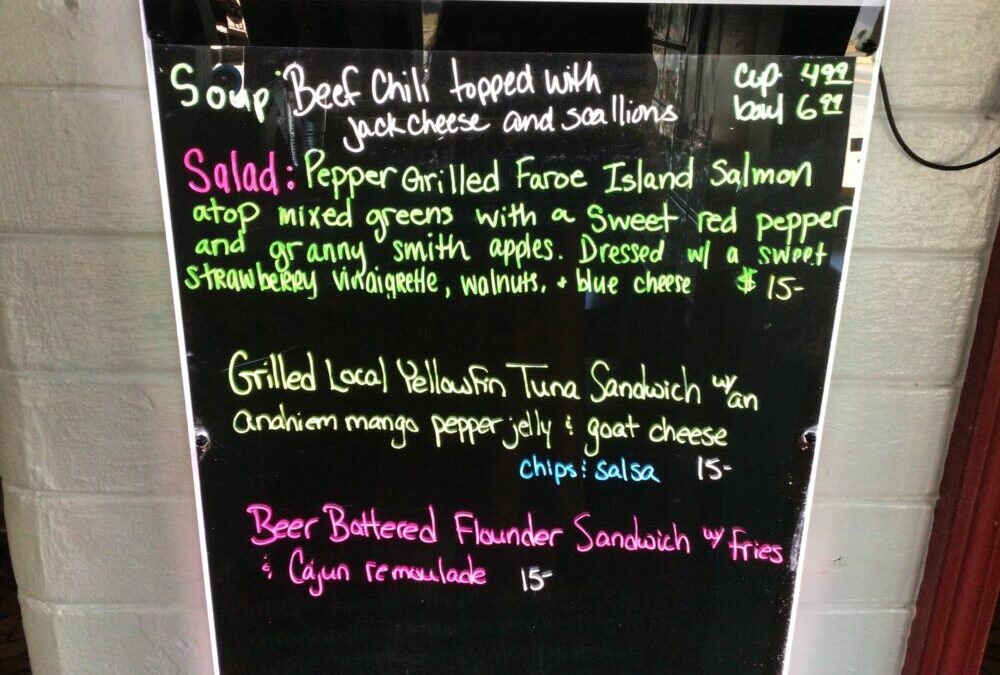 Soup Beef Chili topped with cup 4.99
jack cheese and scallions bowl 6.99
Salad: Pepper Grilled Faroe Island Salmon
atop mixed greens with a sweet red pepper
and granny smith apples. Dressed w/ a sweet
strawberry vinaigrette, walnuts, + blue cheese $ 15-
Grilled Local Yellowfin Tuna Sandwich w/ an
anahiem mango pepper jelly & goat cheese
chips & salsa 15-
Beer Battered Flounder Sandwich w/ Fries
& Cajun remoulade 15-